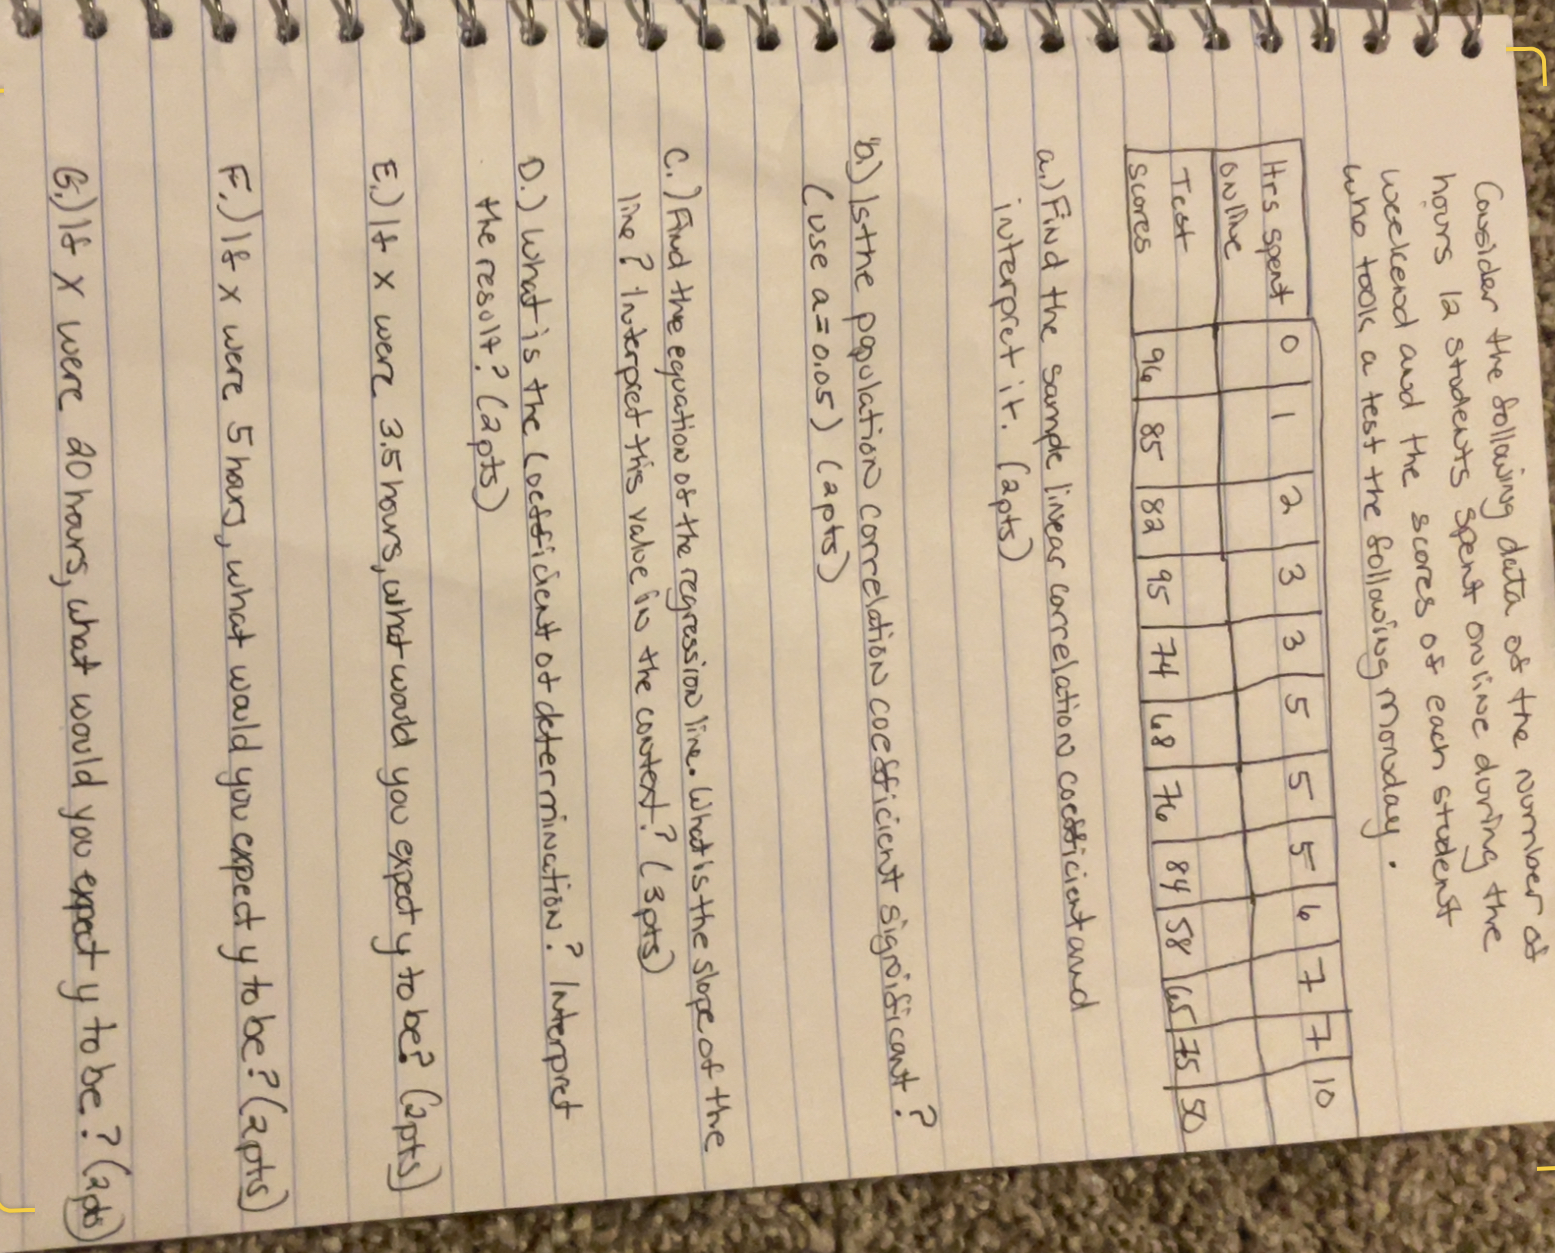 Consider the following data of the number of
hours 12 students spent online during the
weekend and the scores of each student
who took a test the following monday.
Hrs spent online 0 1 2 3 3 5 5 5 6 7 7 10
Test scores 96 85 82 95 74 68 76 84 58 65 75 50
a.) Find the sample linear correlation coefficient and
interpret it. (2pts)
b.) Is the population correlation coefficient significant?
(use a=0.05) (2pts)
C.) Find the equation of the regression line. What is the slope of the
line? Interpret this value in the context? (3pts)
D.) What is the coefficient of determination? Interpret
the result? (2pts)
E.) If x were 3.5 hours, what would you expect y to be? (2pts)
F.) If x were 5 hours, what would you expect y to be? (2pts)
G.) If x were 20 hours, what would you expect y to be? (2pts)